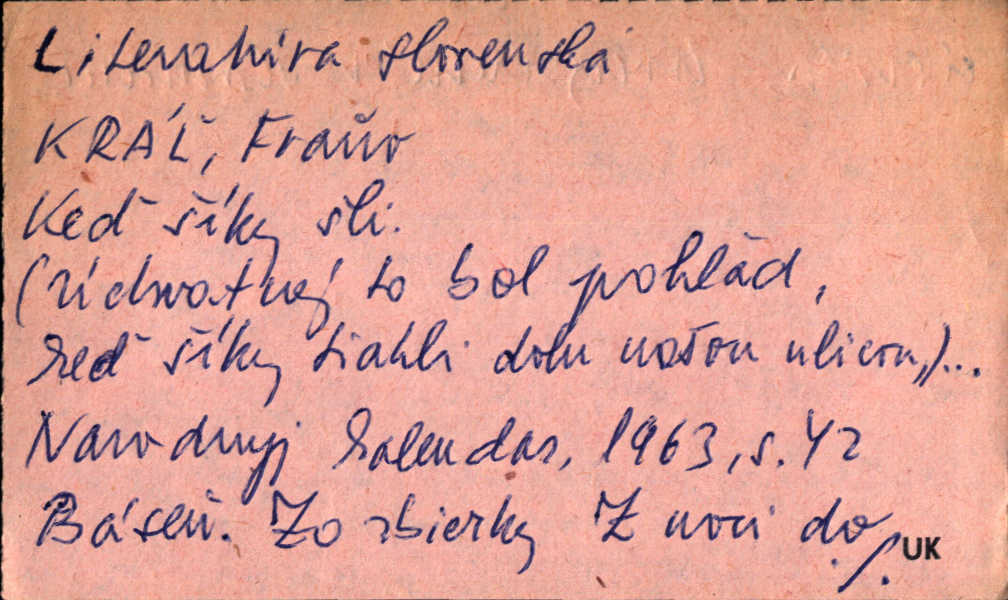 Literatúra slovenská
KRÁĽ, Fraňo
Keď šíky šli.
(Úchvatný to bol pohľad,
keď šíky tiahli dolu našou ulicou,)...
Národný kalendár, 1963, s. 42
Báseň. Zo zbierky Z noci do
./. UK